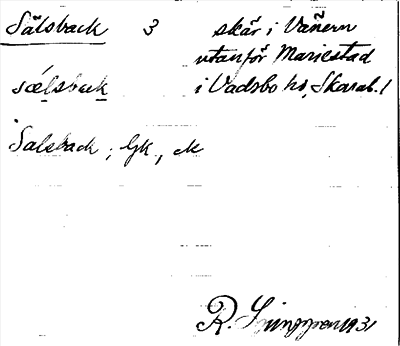 Sälsback 3 skär i Vänern
utanför Mariestad
sælsbak i Vadsbo hd, Skarab. l
Salsback, GK, 
R. Ljunggren 1931